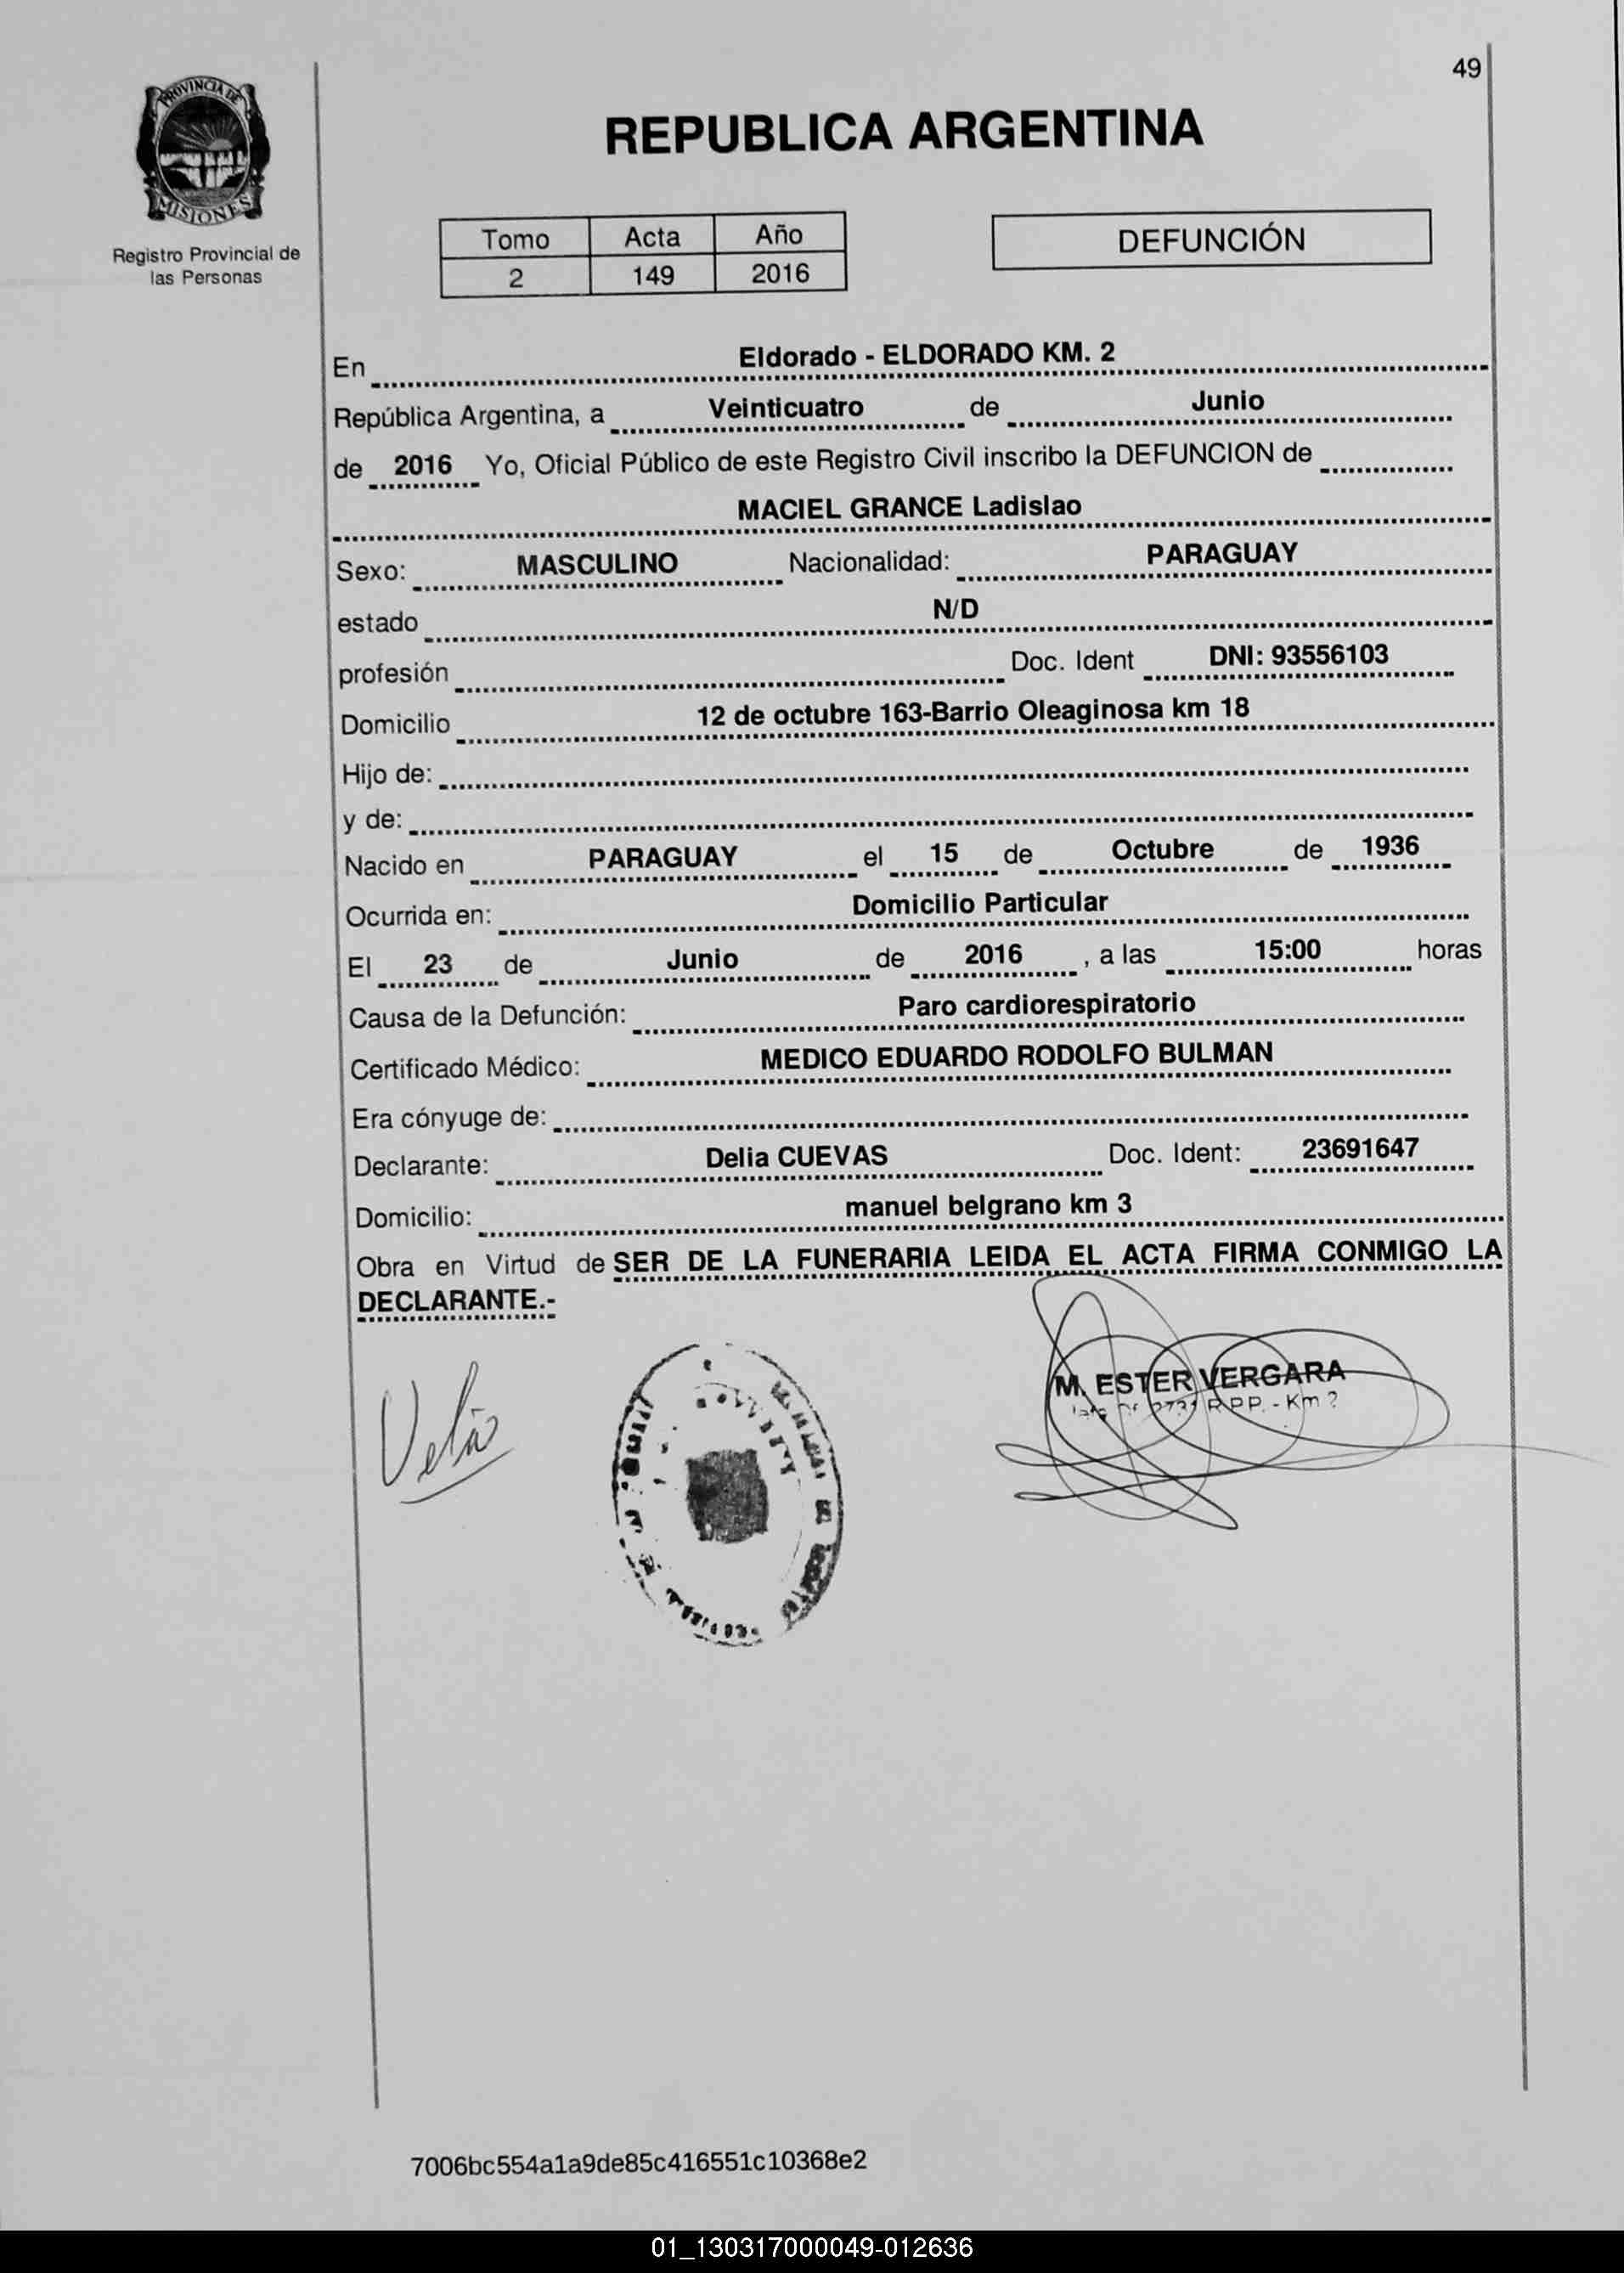 49
PROVINCIA DE
MISIONES
Registro Provincial de
las Personas
REPUBLICA ARGENTINA
Tomo Acta Año
2 149 2016
DEFUNCIÓN
En Eldorado - ELDORADO KM. 2
República Argentina, a Veinticuatro de Junio
de 2016 Yo, Oficial Público de este Registro Civil inscribo la DEFUNCION de
MACIEL GRANCE Ladislao
Sexo: MASCULINO Nacionalidad: PARAGUAY
estado N/D
profesión Doc. Ident DNI: 93556103
Domicilio 12 de octubre 163-Barrio Oleaginosa km 18
Hijo de:
y de:
Nacido en PARAGUAY el 15 de Octubre de 1936
Ocurrida en: Domicilio Particular
El 23 de Junio de 2016 , a las 15:00 horas
Causa de la Defunción: Paro cardiorespiratorio
Certificado Médico: MEDICO EDUARDO RODOLFO BULMAN
Era cónyuge de:
Declarante: Delia CUEVAS Doc. Ident: 23691647
Domicilio: manuel belgrano km 3
Obra en Virtud de SER DE LA FUNERARIA LEIDA EL ACTA FIRMA CONMIGO LA
DECLARANTE.-
M. ESTER VERGARA
R.P.P. - Km 2
7006bc554a1a9de85c416551c10368e2
01_130317000049-012636